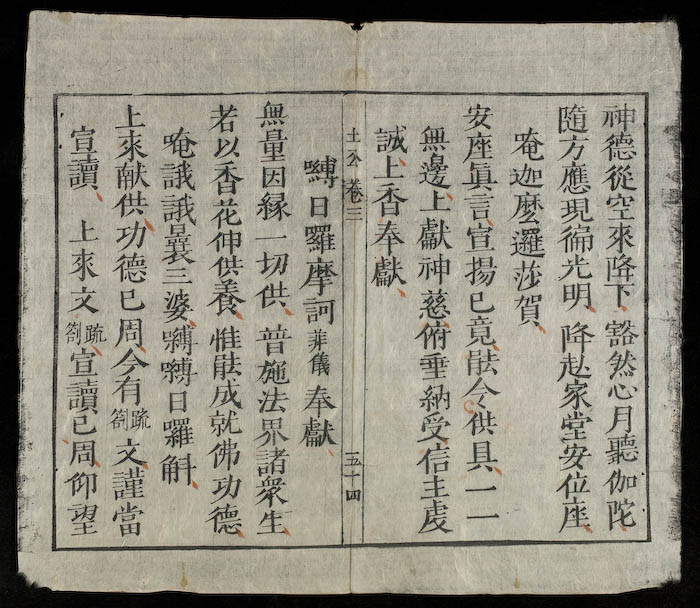 神德從空來降下、豁然心月聽伽陀、
隨方應現徧光明、降赴家堂安位座、
唵迦麼邏莎賀、
安座眞言宣揚已竟、能令供具、一一
無邊、上獻神慈俯垂納受信主虔
誠、上香奉獻、
土公卷三
五十四
嚩日囉摩訶 菲儀 奉獻、
無量因緣一切供、普施法界諸衆生、
若以香花伸供養、惟能成就佛功德、
唵誐誐曩三婆嚩嚩日囉斛
上來献供、功德已周、今有 疏劄 文、謹當
宣讀、 上來文 疏劄 宣讀已周、仰望